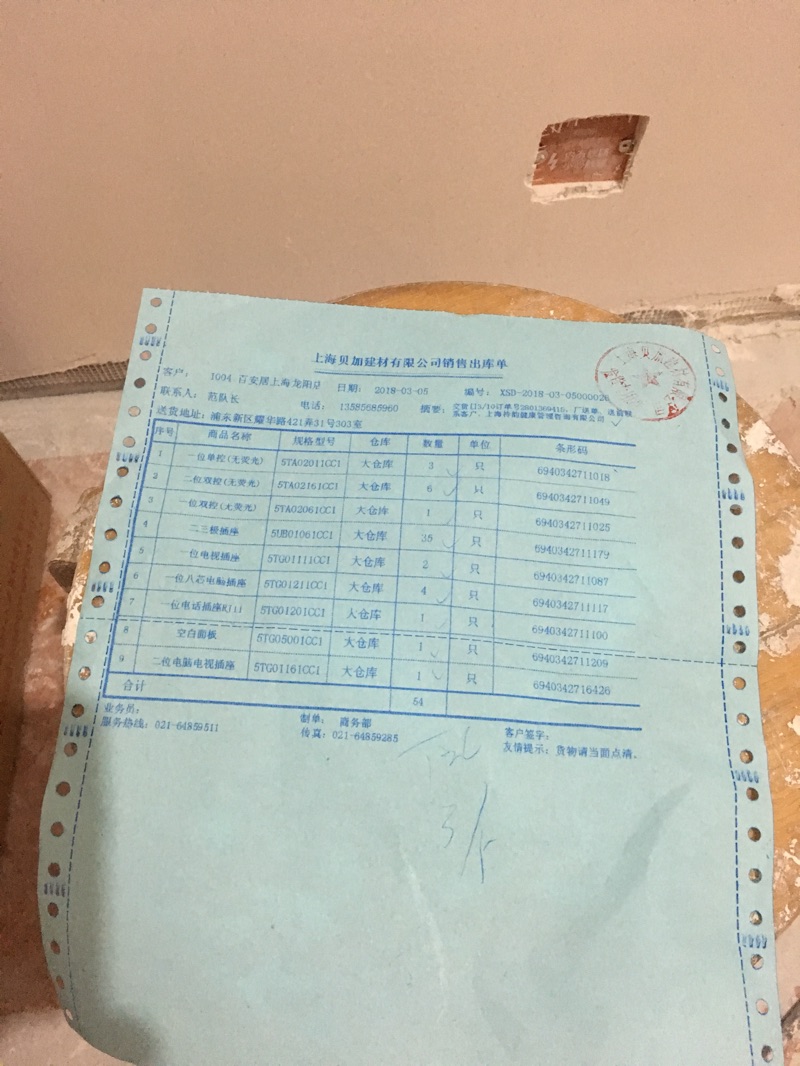 上海贝加建材有限公司销售出库单
客户： 1004 百安居上海龙阳店 日期： 2018-03-05 编号： XSD-2018-03-05000026
联系人： 范队长 电话： 13585685960 摘要：
送货地址：浦东新区耀华路421弄31号303室
序号 商品名称 规格型号 仓库 数量 单位 条形码
1 一位单控(无荧光) 5TA02011CC1 大仓库 3 只 6940342711018
2 二位双控(无荧光) 5TA02161CC1 大仓库 6 只 6940342711049
3 一位双控(无荧光) 5TA02061CC1 大仓库 1 只 6940342711025
4 二三极插座 5UB01061CC1 大仓库 35 只 6940342711179
5 一位电视插座 5TG01111CC1 大仓库 2 只 6940342711087
6 一位八芯电脑插座 5TG01211CC1 大仓库 4 只 6940342711117
7 一位电话插座RJ11 5TG01201CC1 大仓库 1 只 6940342711100
8 空白面板 5TG05001CC1 大仓库 1 只 6940342711209
9 二位电脑电视插座 5TG01161CC1 大仓库 1 只 6940342716426
合计 54
业务员： 制单： 商务部 客户签字：
服务热线：021-64859511 传真：021-64859285 友情提示：货物请当面点清。
3/5